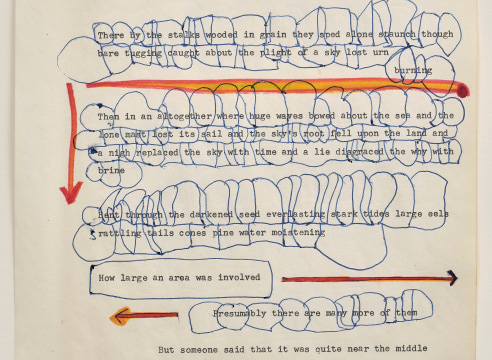 There by the stalks wooded in grain they sped alone staunch though
bare tugging caught about the plight of a sky lost urn
burning
Then in an altogether where huge waves bowed about the sea and the
lone mast lost its sail and the sky's root fell upon the land and
a nigh replaced the sky with time and a lie disgraced the why with
brine
Bent through the darkened seed everlasting stark tides large eels
rattling tails cones pine water moistening
How large an area was involved
Presumably there are many more of them
But someone said that it was quite near the middle